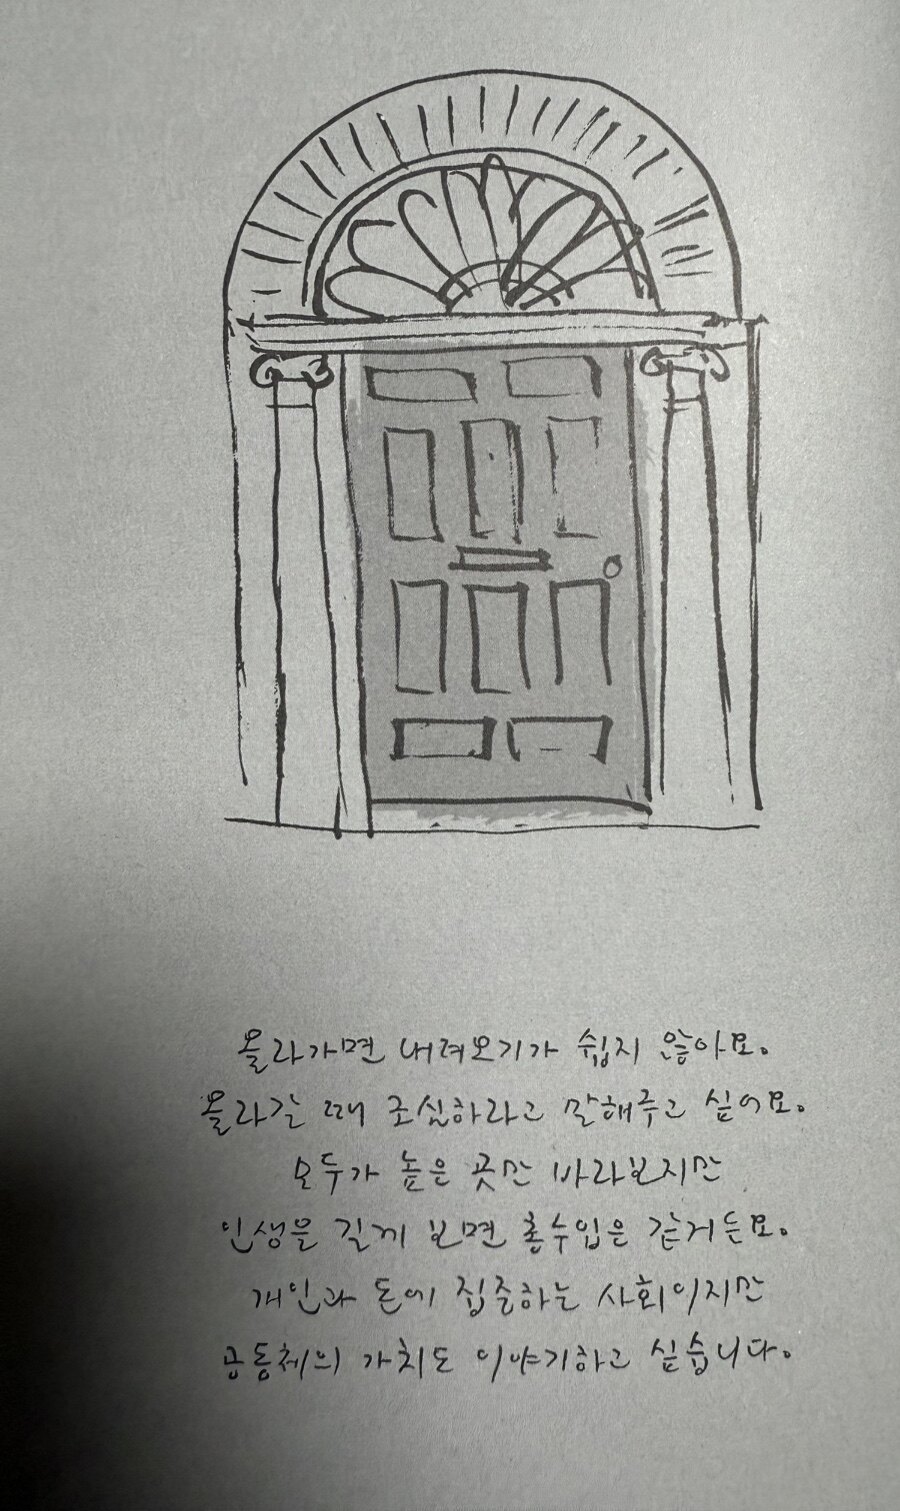 올라가면 내려오기가 쉽지 않아요.
올라갈 때 조심하라고 말해주고 싶어요.
모두가 높은 곳만 바라보지만
인생을 길게 보면 총수입은 같거든요.
개인과 돈에 집중하는 사회이지만
공동체의 가치도 이야기하고 싶습니다.